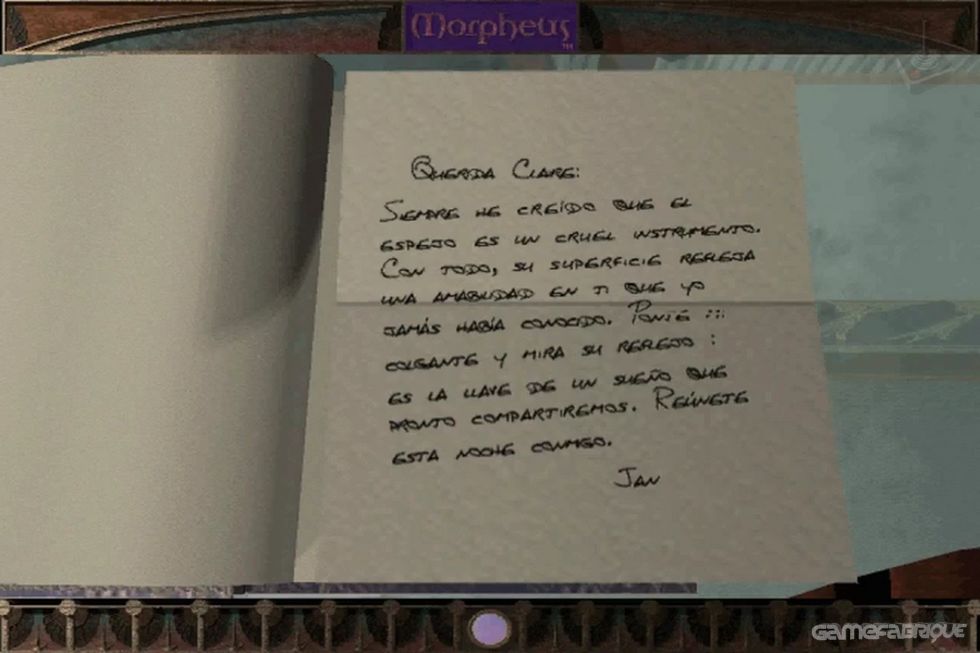 Morpheus™
Querida Clare:
Siempre he creído que el
espejo es un cruel instrumento.
Con todo, su superficie refleja
una amabilidad en ti que yo
jamás había conocido. Ponte
colgante y mira su reflejo :
es la llave de un sueño que
pronto compartiremos. Reúnete
esta noche conmigo.
Jan
GAMEFABRIQUE